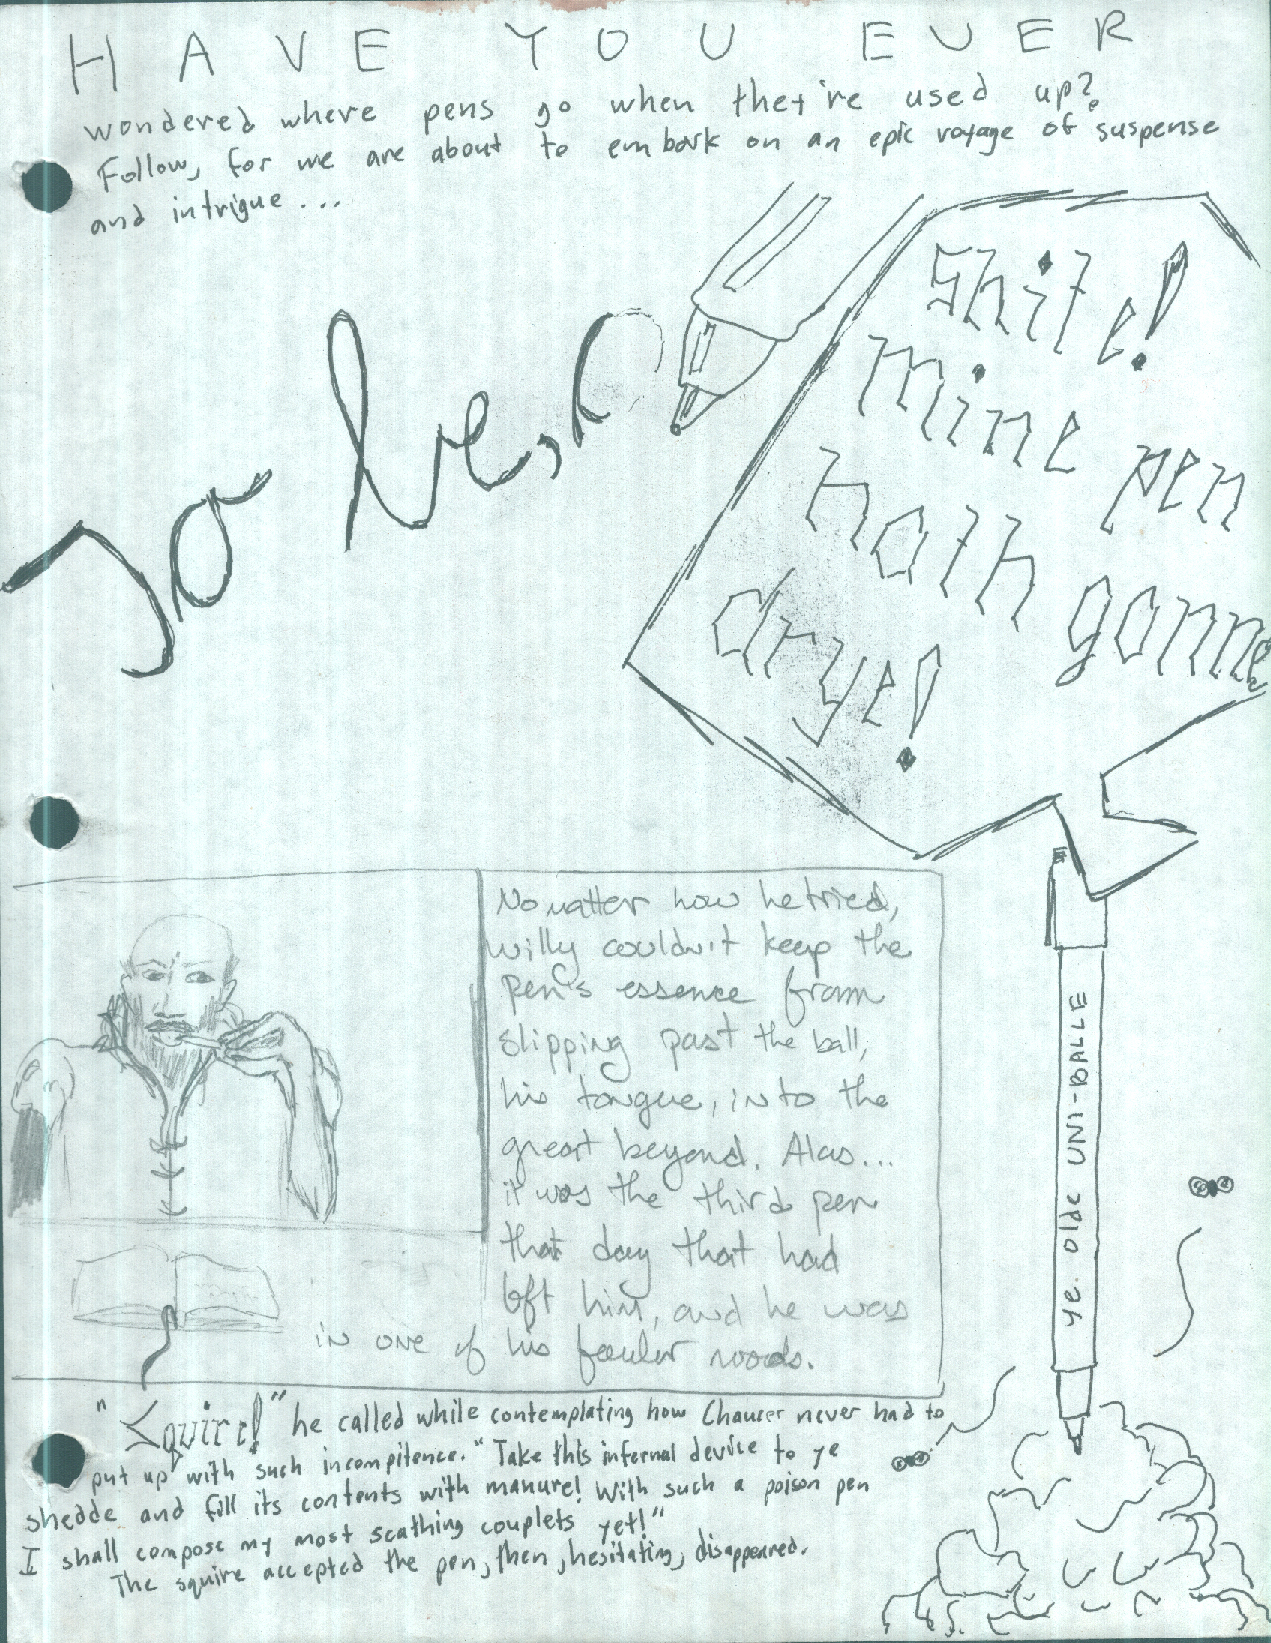 HAVE YOU EVER
wondered where pens go when they're used up?
Follow, for we are about to embark on an epic voyage of suspense
and intrigue...
To be, o
Shite!
mine pen
hath gonne
drye!
No matter how he tried,
willy couldn't keep the
pen's essence from
slipping past the ball,
his tongue, into the
great beyond. Alas...
it was the third pen
that day that had
left him, and he was
in one of his fouler moods.
ye olde UNI-BALLE
"Squire!" he called while contemplating how Chaucer never had to
put up with such incompitence. "Take this infernal device to ye
shedde and fill its contents with manure! With such a poison pen
I shall compose my most scathing couplets yet!"
The squire accepted the pen, then, hesitating, disappeared.